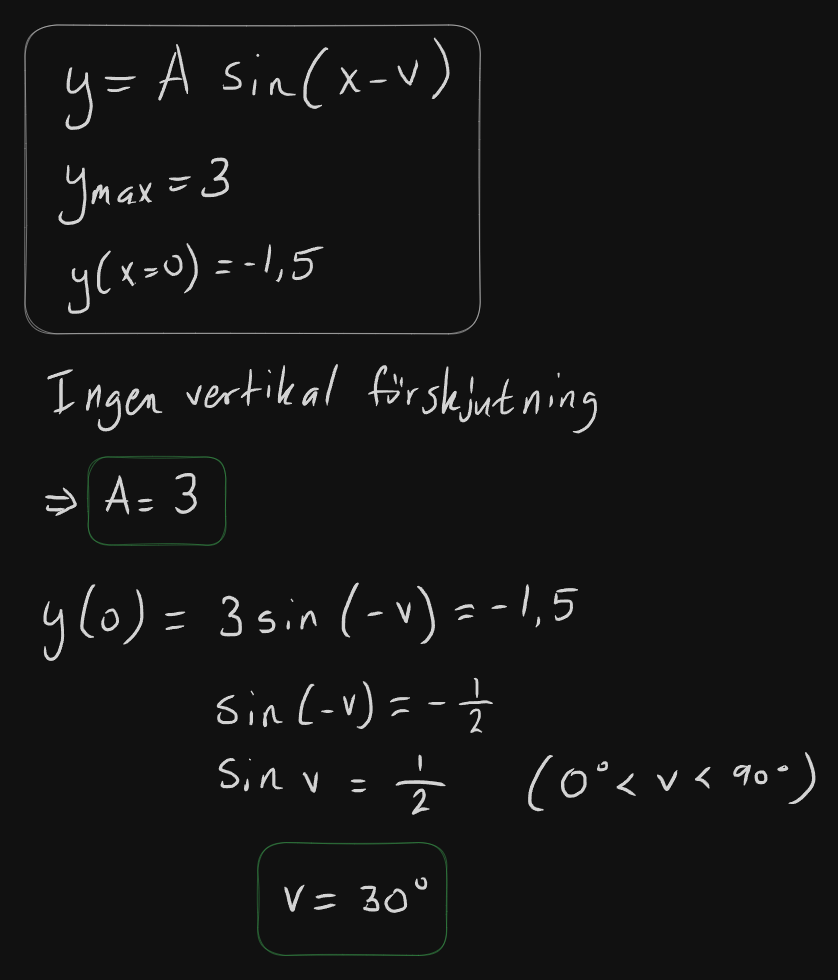 y = A sin(x-v)
y_max = 3
y(x=0) = -1,5
Ingen vertikal förskjutning
⇒ A = 3
y(0) = 3 sin(-v) = -1,5
sin(-v) = -1/2
sin v = 1/2 (0° < v < 90°)
v = 30°